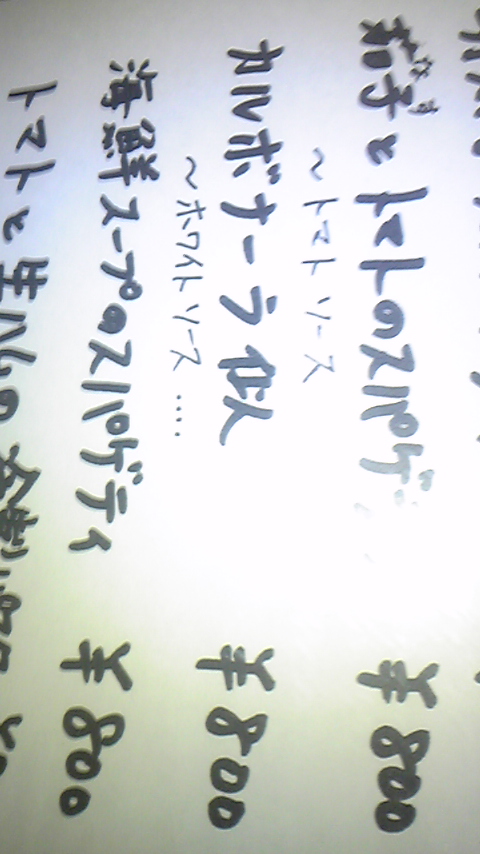 なす
茄子とトマトのスパゲティ ¥800
～トマトソース
カルボナーラ似 ¥800
～ホワイトソース ....
海鮮スープのスパゲティ ¥800
トマトと生ハムの